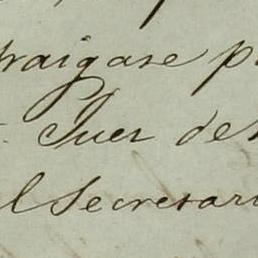 traigase p
Juez de
el Secretari